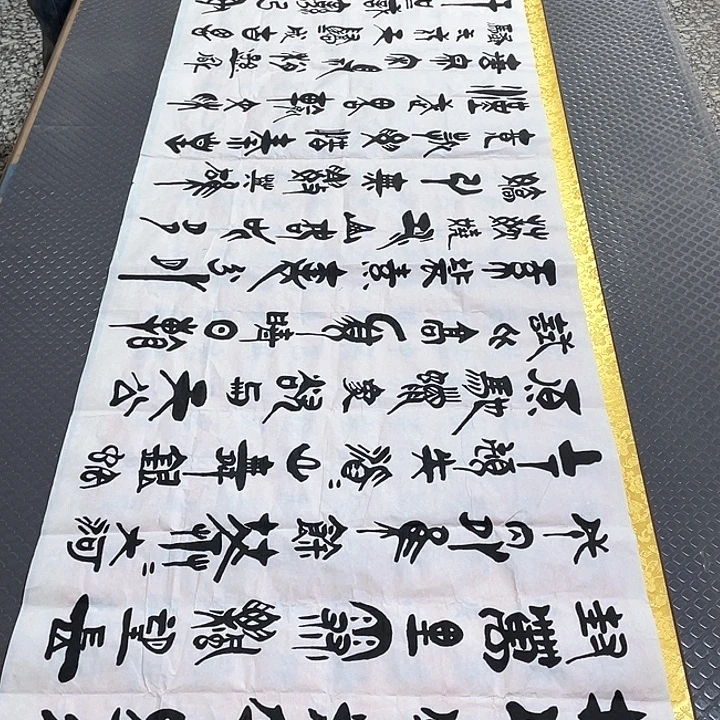 封萬里雪飄望長
城内外惟餘莽〻大河
上下頓失滔〻山舞銀蛇
原馳蠟象欲與天公
試比高須晴日看
紅裝素裹分外
妖嬈江山如此多
嬌引無數英雄
競折腰惜秦皇
漢武略輸文采
唐宗宋祖稍遜風
騷一代天驕成吉思